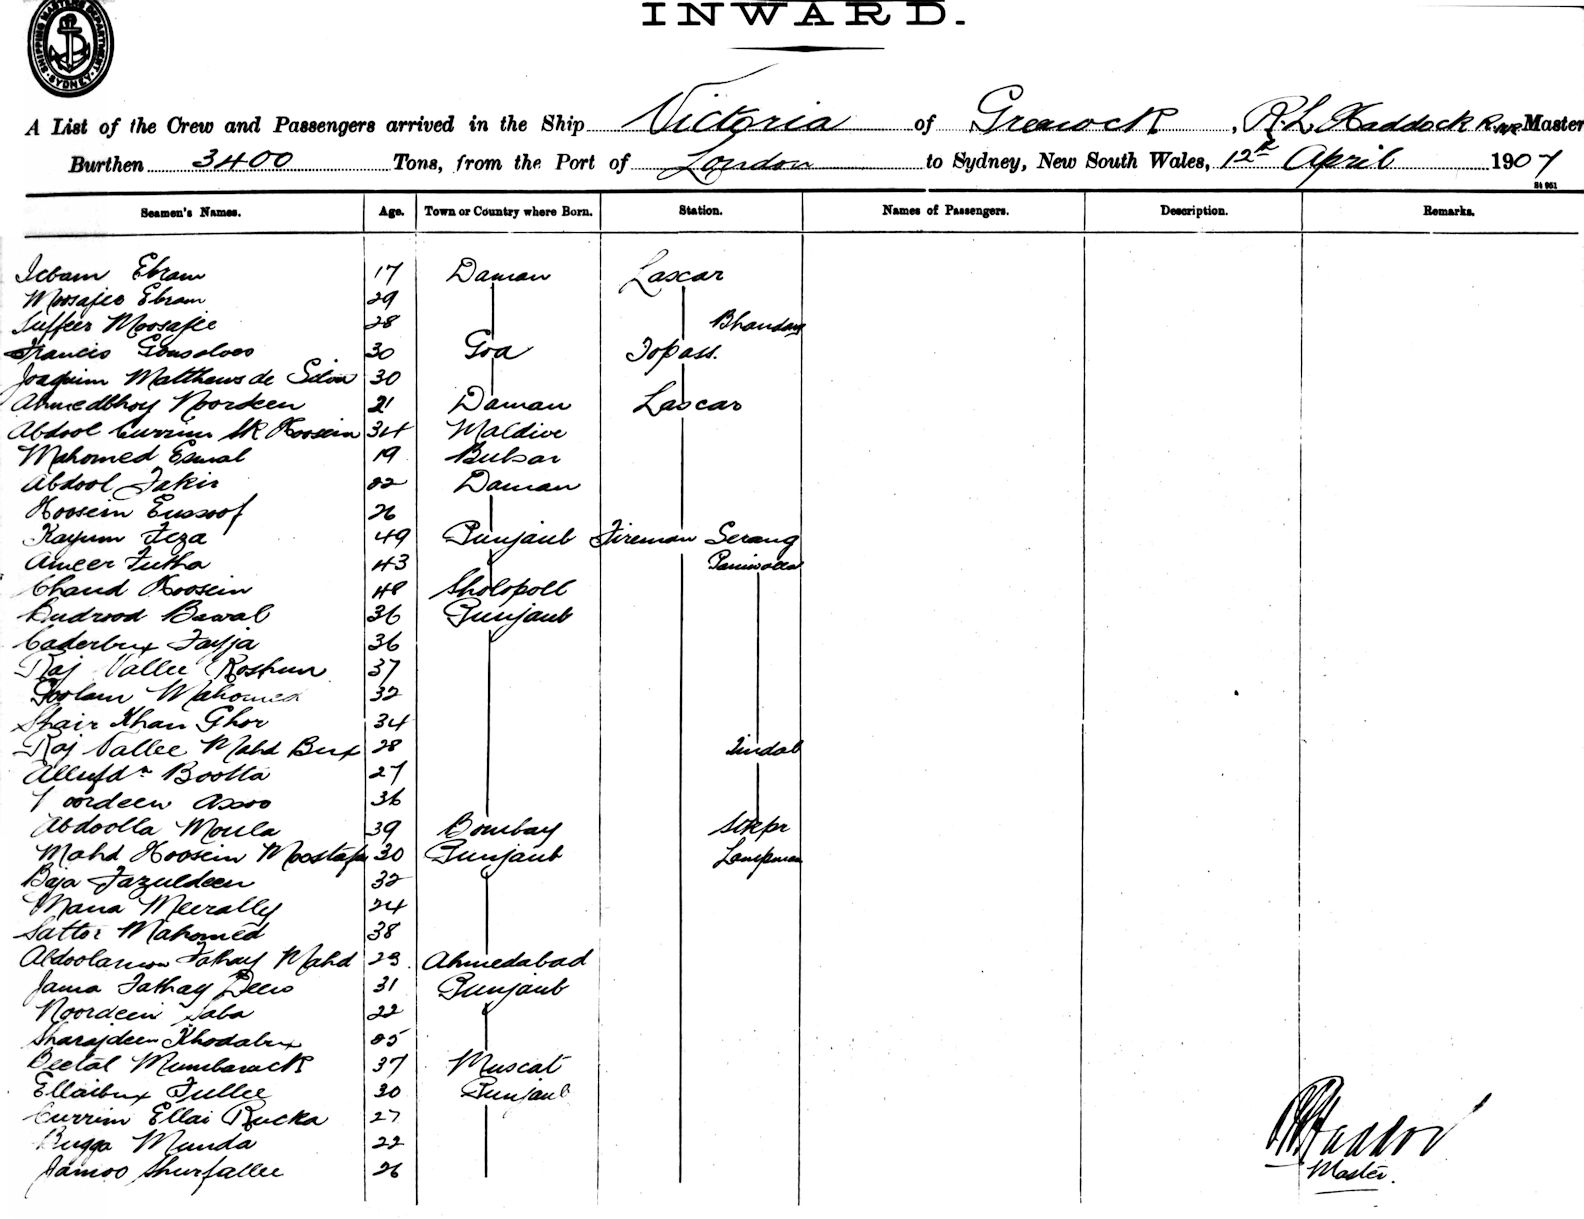 SHIPPING MASTERS DEPARTMENT SYDNEY
INWARD.
A List of the Crew and Passengers arrived in the Ship Victoria of Greenock, R. L. Haddock R.N.R. Master
Burthen 3400 Tons, from the Port of London to Sydney, New South Wales, 12th April 1907
St 951
Seamen's Names. Age. Town or Country where Born. Station. Names of Passengers. Description. Remarks.
Ebram 17 Daman Lascar
Moosajee Ebram 29
Moosajee 28 Bhandary
Francis Gonsalves 30 Goa Topass.
Joaquim Matthews de Silva 30
Ahmedbhoy Noordeen 21 Daman Lascar
Abdool Currim Sk Hoosein 34 Maldive
Mahomed Esmal 19 Bulsar
Abdool Fakir 22 Daman
Hoosein Eussoof 26
Kayum Feza 49 Punjaub Fireman Serang
Ameer Futha 43 Paniwalla
Chand Hoosein 48 Sholopoll
Budrood Bawal 36 Punjaub
Caderbux Fajja 36
Raj Vallee Roshun 37
Goolam Mahomed 32
Shair Khan Ghor 34
Raj Vallee Mahd Bux 28 Tindal
Bootta 27
oordeen Assoo 36
Abdoolla Moula 39 Bombay Stkpr
Mahd Hoosein Moostafa 30 Punjaub Lampman
Baja Fazuldeen 32
Mana Meerally 24
Sattor Mahomed 38
Fathay Mahd 23 Ahmedabad
Jama Fathay Deen 31 Punjaub
Noordeen Saba 22
Sharajdeen Khodabux 25
Beetal Mumbarack 37 Muscat
Ellaibux Fullee 30 Punjaub
Currim Ellai Rucka 27
Bugga Munda 22
Jamoo Shurfallee 26
R L Haddock
Master.